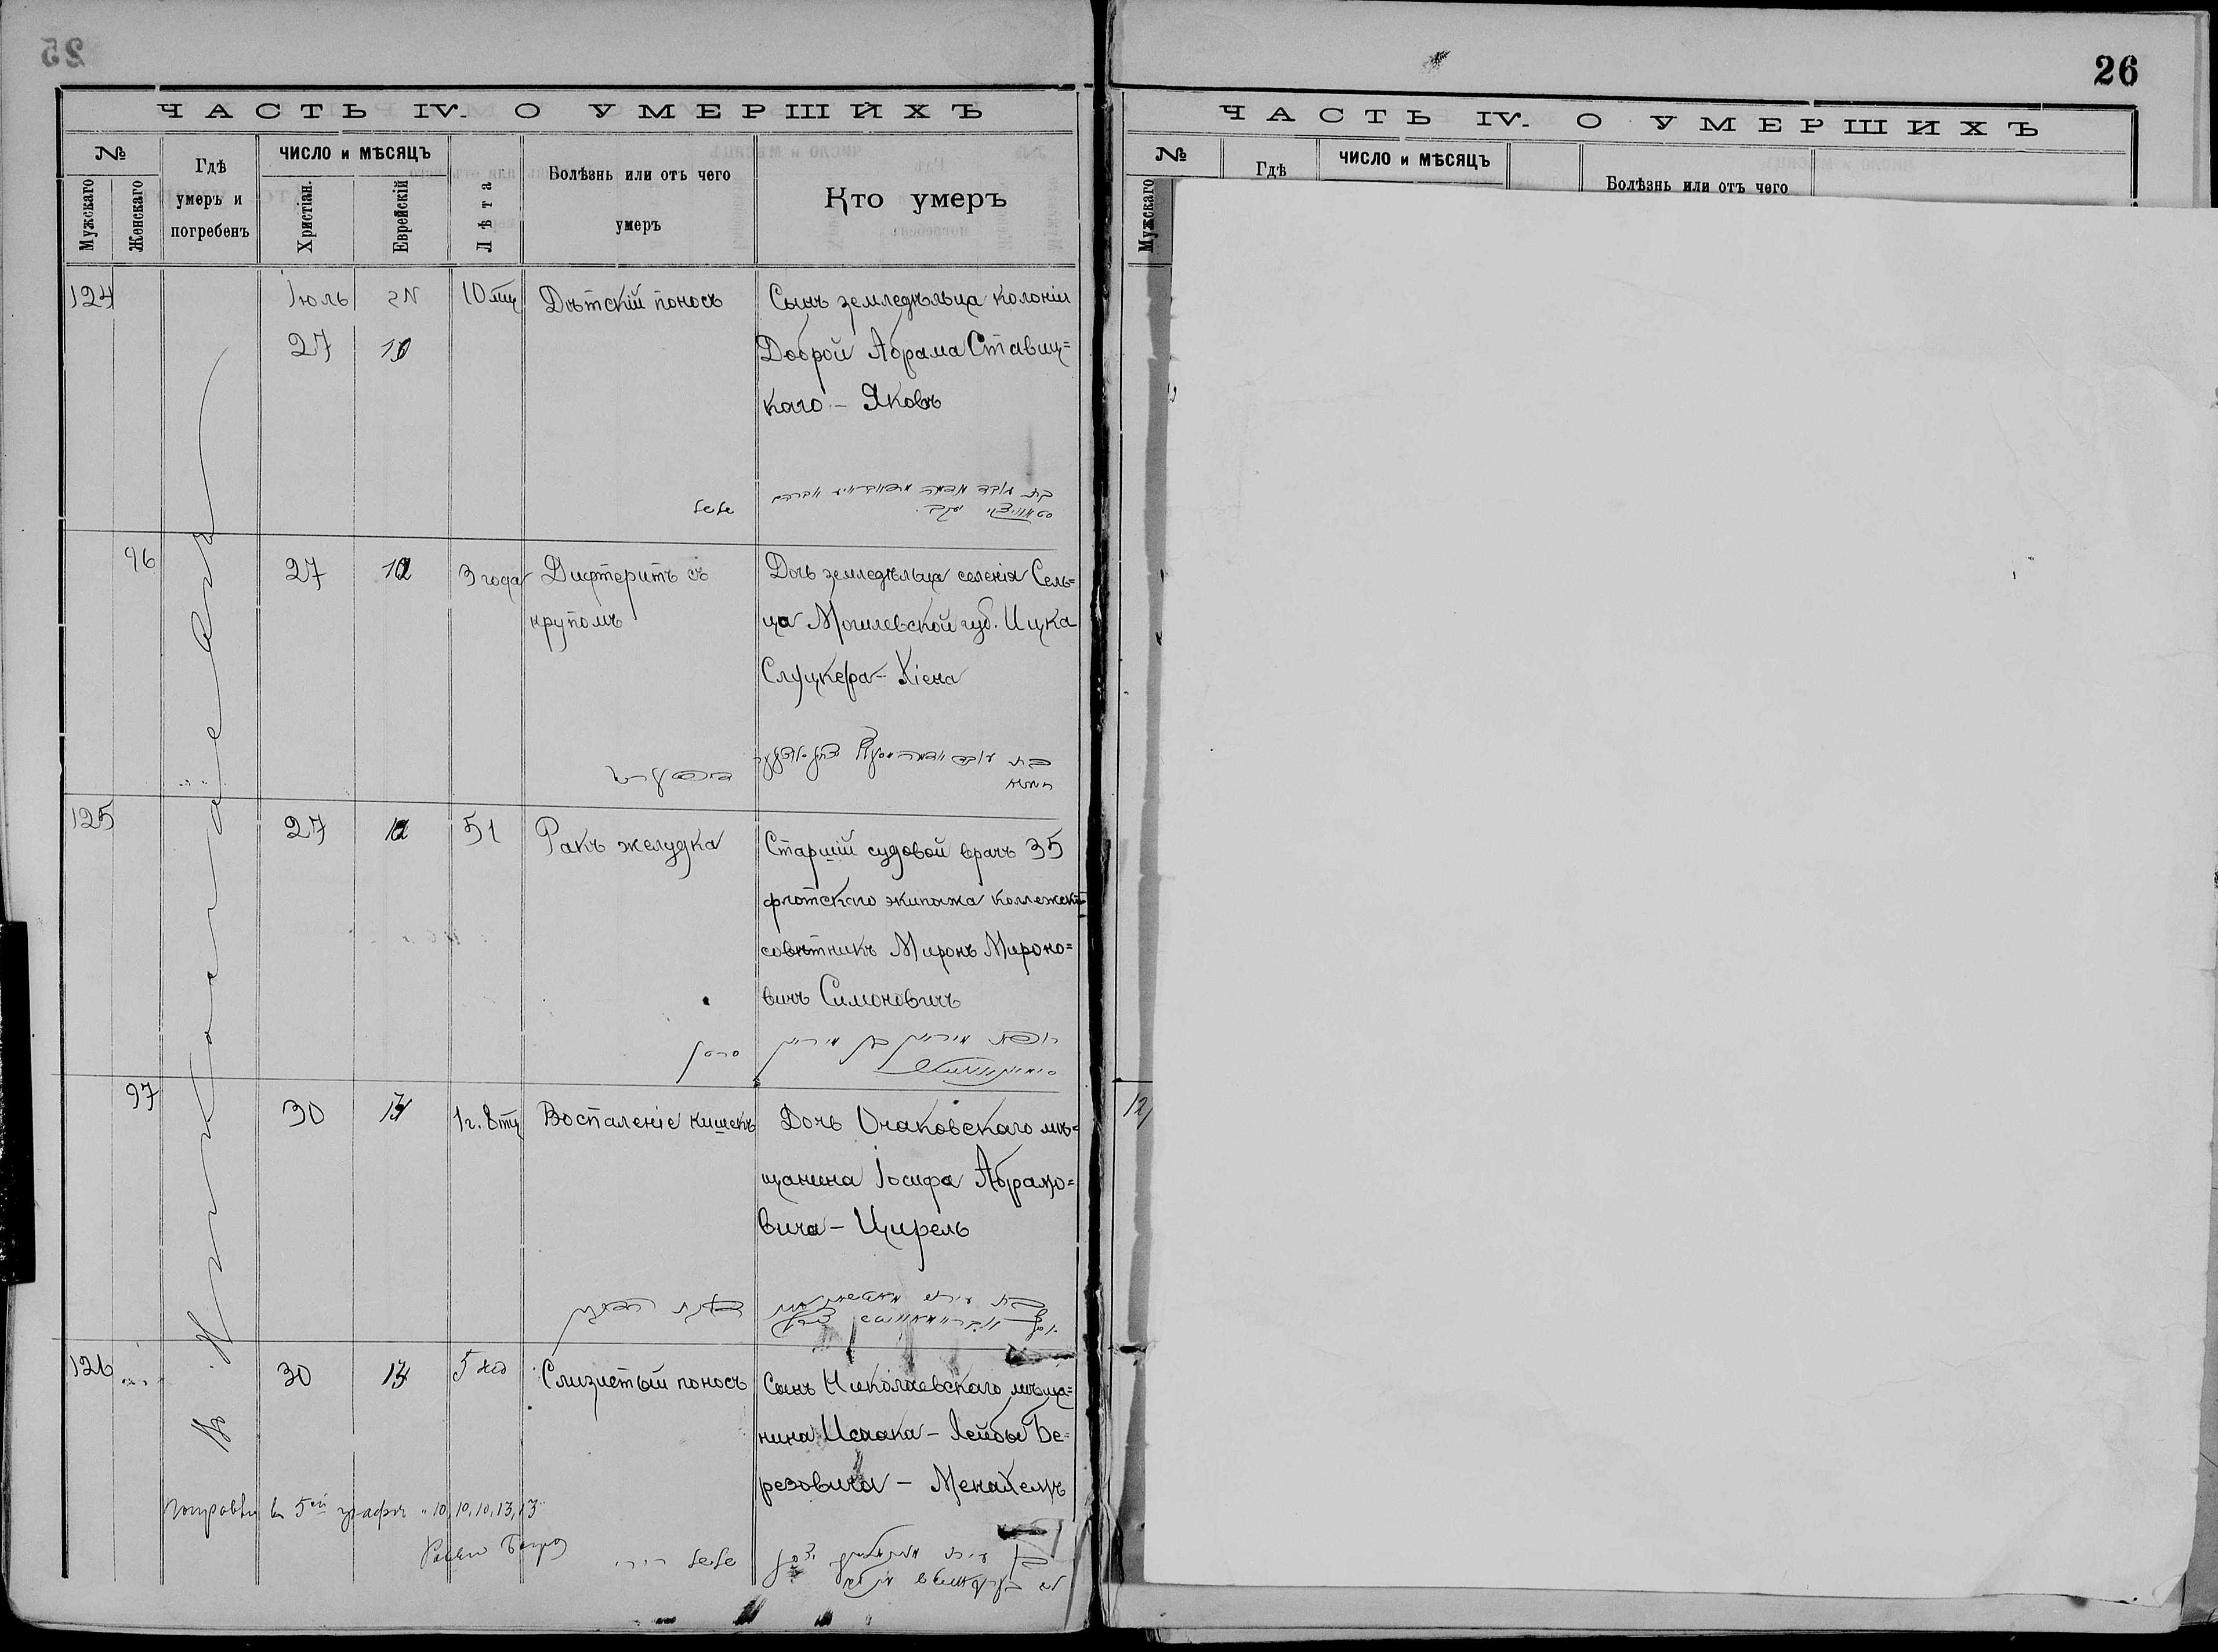 26
ЧАСТЬ IV. О УМЕРШИХЪ
№
Мужскаго
Женскаго
Гдѣ
умеръ и
погребенъ
ЧИСЛО и МѢСЯЦЪ
Христіан.
Еврейскій
Лѣта
Болѣзнь или отъ чего
умеръ
Кто умеръ
Въ г. Николаевѣ
124
Іюль
אב
27
10
10 мц
Дѣтскій поносъ
Сынъ земледѣльца колоніи
Доброй Абрама Ставиц=
каго – Яковъ
שלשול
96
27
10
3 года
Дифтеритъ съ
крупомъ
Дочь земледѣльца селенія Сель=
ца Могилевской губ. Ицка
Слуцкера – Хіена
125
27
10
51
Ракъ желудка
Старшій судовой врачъ 35
флотскаго экипажа коллежскій
совѣтникъ Миронъ Мироно=
вичъ Симоновичъ
רופא מירון בן מירון
סימאנאוויטש
97
30
13
1 г. 8 мц
Воспаленіе кишекъ
Дочь Очаковскаго мѣ=
щанина Іосифа Абрамо=
вича – Цирель
126
30
13
5 нед
Слизистый поносъ
Сынъ Николаевскаго мѣща=
нина Исаака – Лейбы Бе=
резовича – Менахемъ
שלשול
Поправки въ 5ой графѣ "10, 10, 10, 13, 13"
ЧАСТЬ IV. О УМЕРШИХЪ
№
Мужскаго
Гдѣ
ЧИСЛО и МѢСЯЦЪ
Болѣзнь или отъ чего